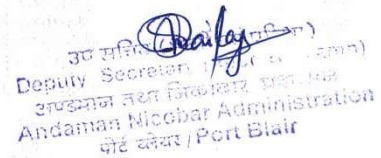 उप सचिव
Deputy Secretary
अण्डमान तथा निकोबार प्रशासन
Andaman Nicobar Administration
पोर्ट ब्लेयर / Port Blair